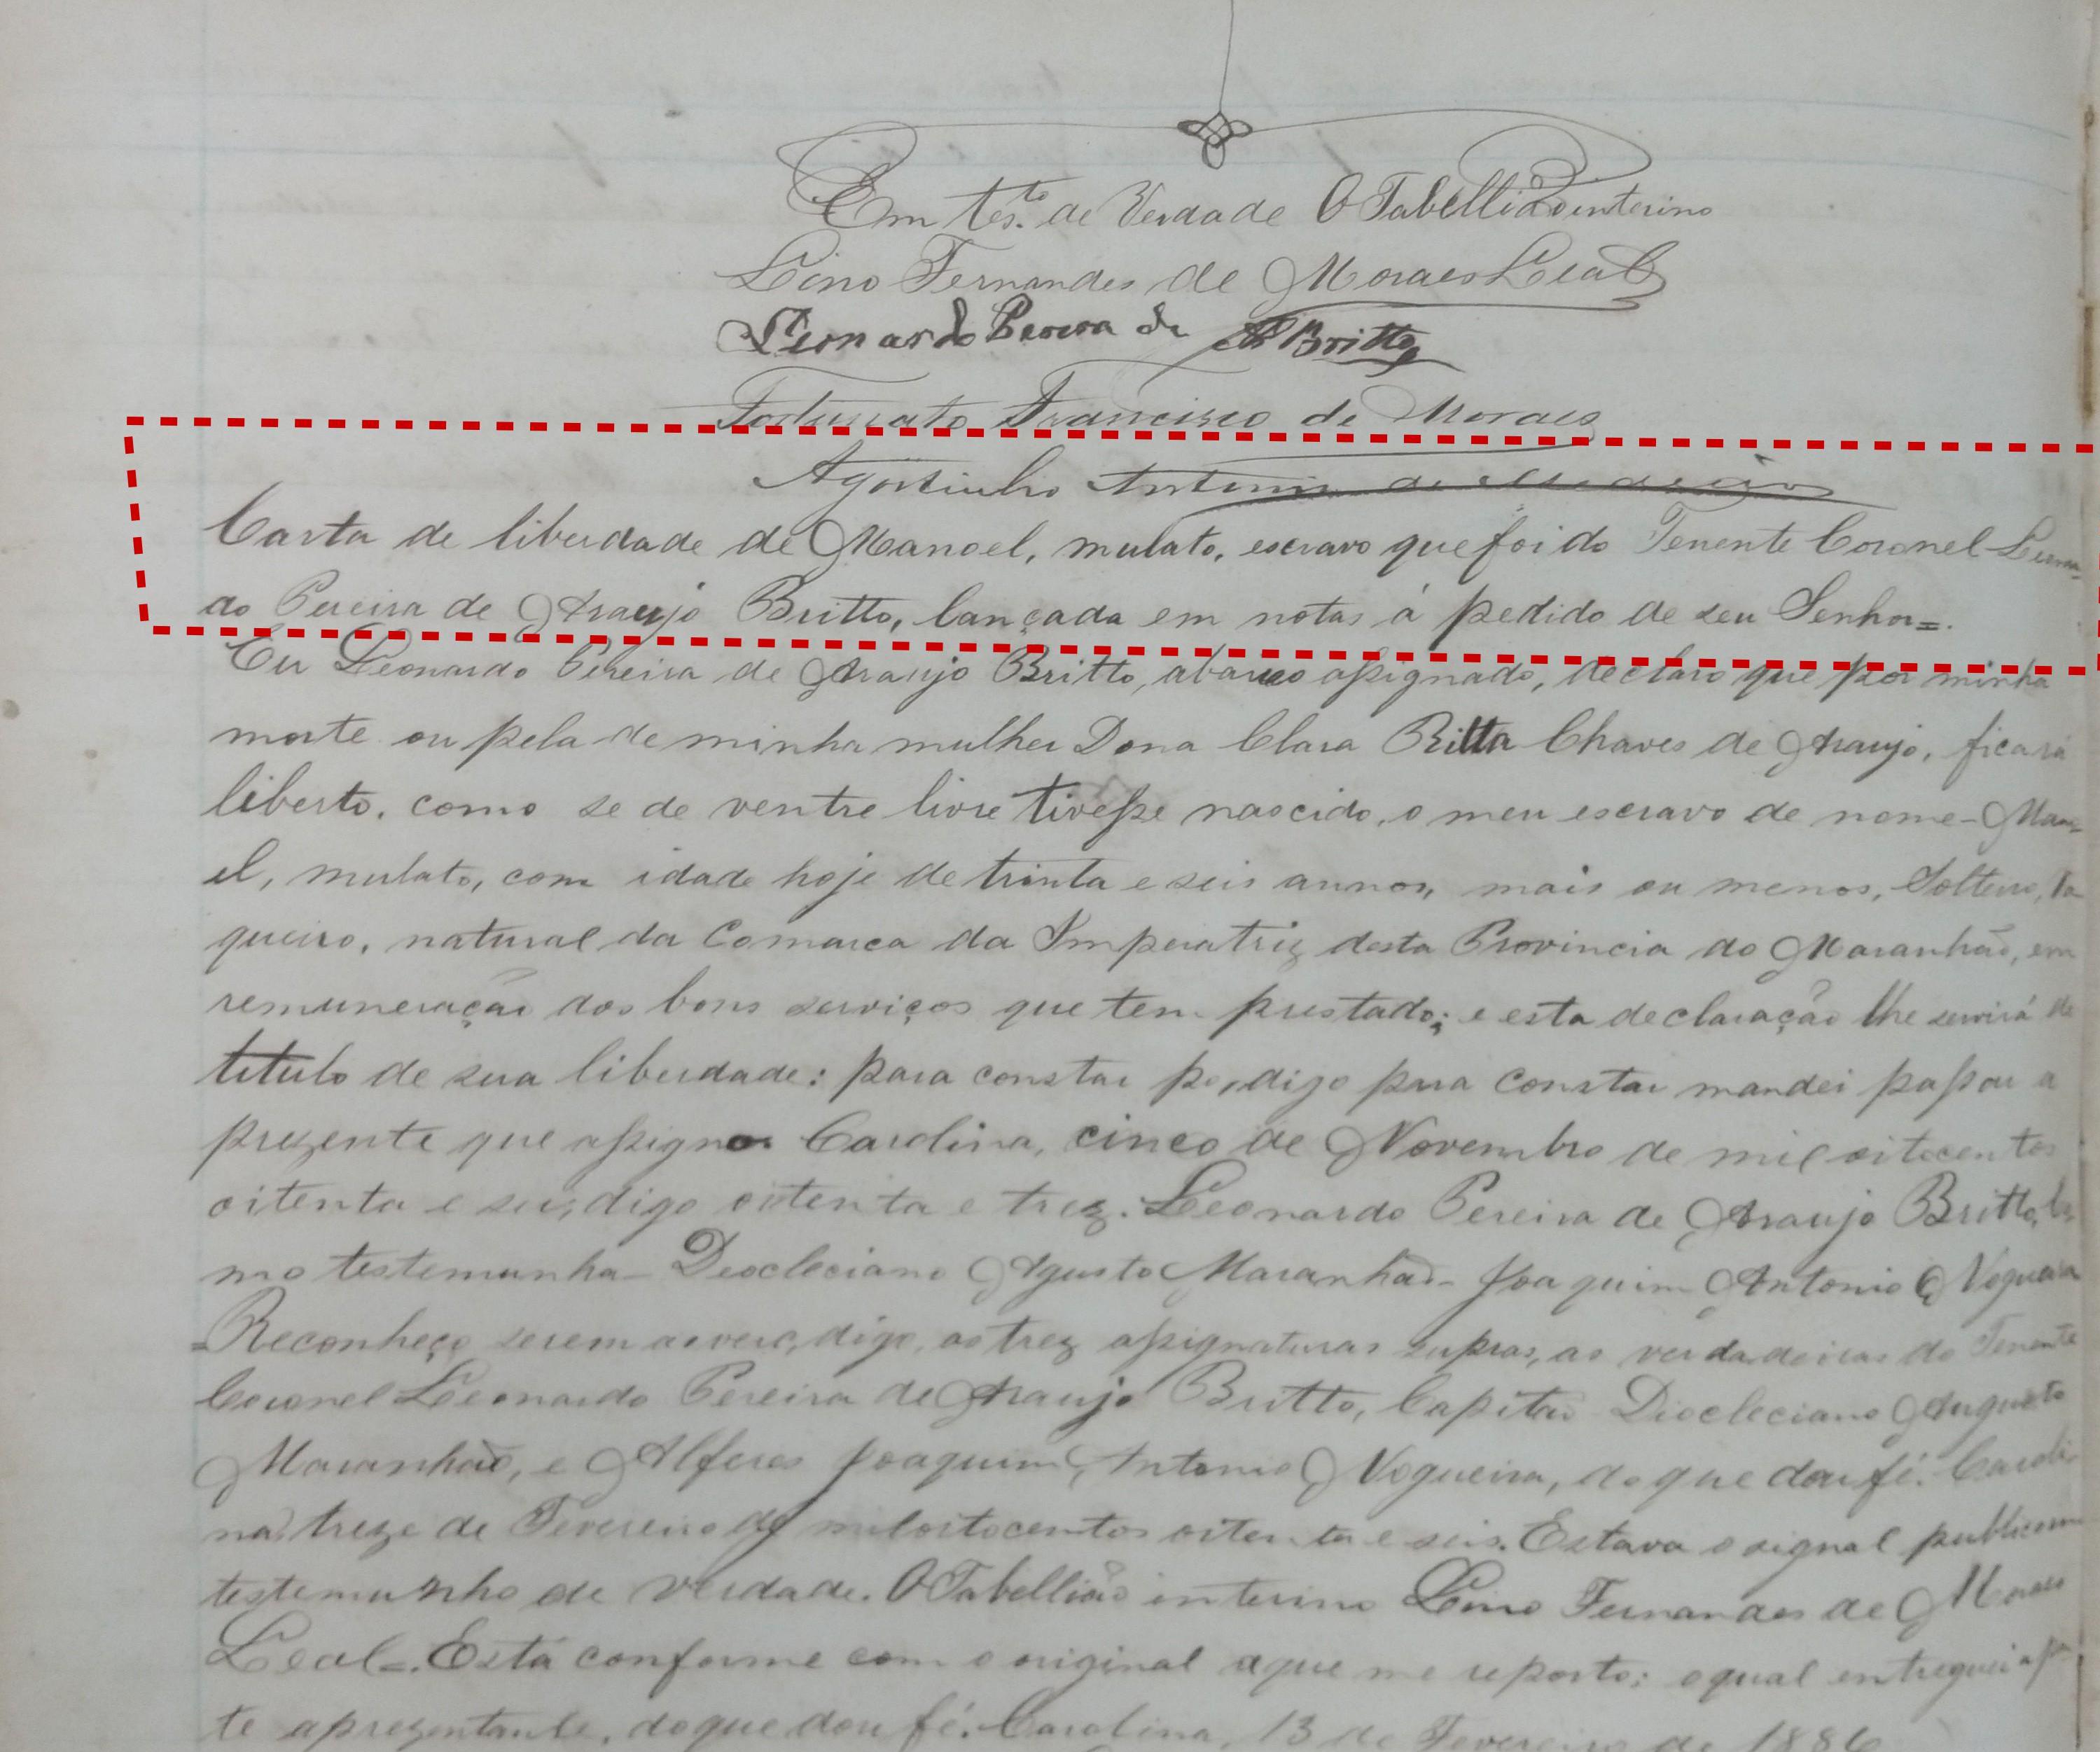 Em tes.to de Verdade O Tabellião interino
Lino Fernandes de Moraes Leal
Leonardo Pereira de A Britto
Fortunato Francisco de Moraes
Agostinho Antonio de
Carta de liberdade de Manoel, mulato, escravo que foi do Tenente Coronel Leonar-
do Pereira de Araujo Britto, lançada em notas á pedido de seu Senhor=.
Eu Leonardo Pereira de Araujo Britto, abaixo assignado, declaro que por minha
morte ou pela de minha mulher Dona Clara Ritta Chaves de Araujo, ficará
liberto, como se de ventre livre tivesse nascido, o meu escravo de nome - Mano-
el, mulato, com idade hoje de trinta e seis annos, mais ou menos, Solteiro, Va
queiro, natural da Comarca da Imperatriz desta Provincia do Maranhão, em
remuneração dos bons serviços que tem prestado; e esta declaração lhe servirá de
titulo de sua liberdade: para constar po, digo para constar mandei passar a
prezente que assigno Carolina, cinco de Novembro de mil oitocentos
oitenta e seis, digo oitenta e trez. Leonardo Pereira de Araujo Britto, Co
mo testemunha - Deocleciano Agusto Maranhão - Joaquim Antonio Nogueira
Reconheço serem as verd, digo, as trez assignaturas supras, as verdadeiras do Tenente
Coronel Leonardo Pereira de Araujo Britto, Capitão Diocleciano Augusto
Maranhão, e Alferes Joaquim Antonio Nogueira, do que dou fé. Caroli
na, treze de Fevereiro de mil oitocentos oitenta e seis. Estava o signal publico em
testemunho de verdade. O Tabellião interino Lino Fernandes de Moraes
Leal=. Está conforme com o original a que me reporto; o qual entreguei ao
te aprezentante, do que dou fé. Carolina, 13 de Fevereiro de 1886